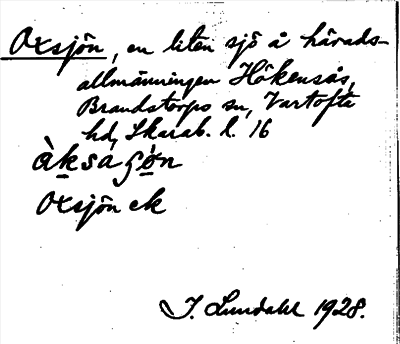 Oxsjön, en liten sjö å härads-
allmänningen Hökensås,
Brandstorps sn, Vartofta
hd, Skarab. l. 16
Oxsjön ek
I. Lundahl 1928.